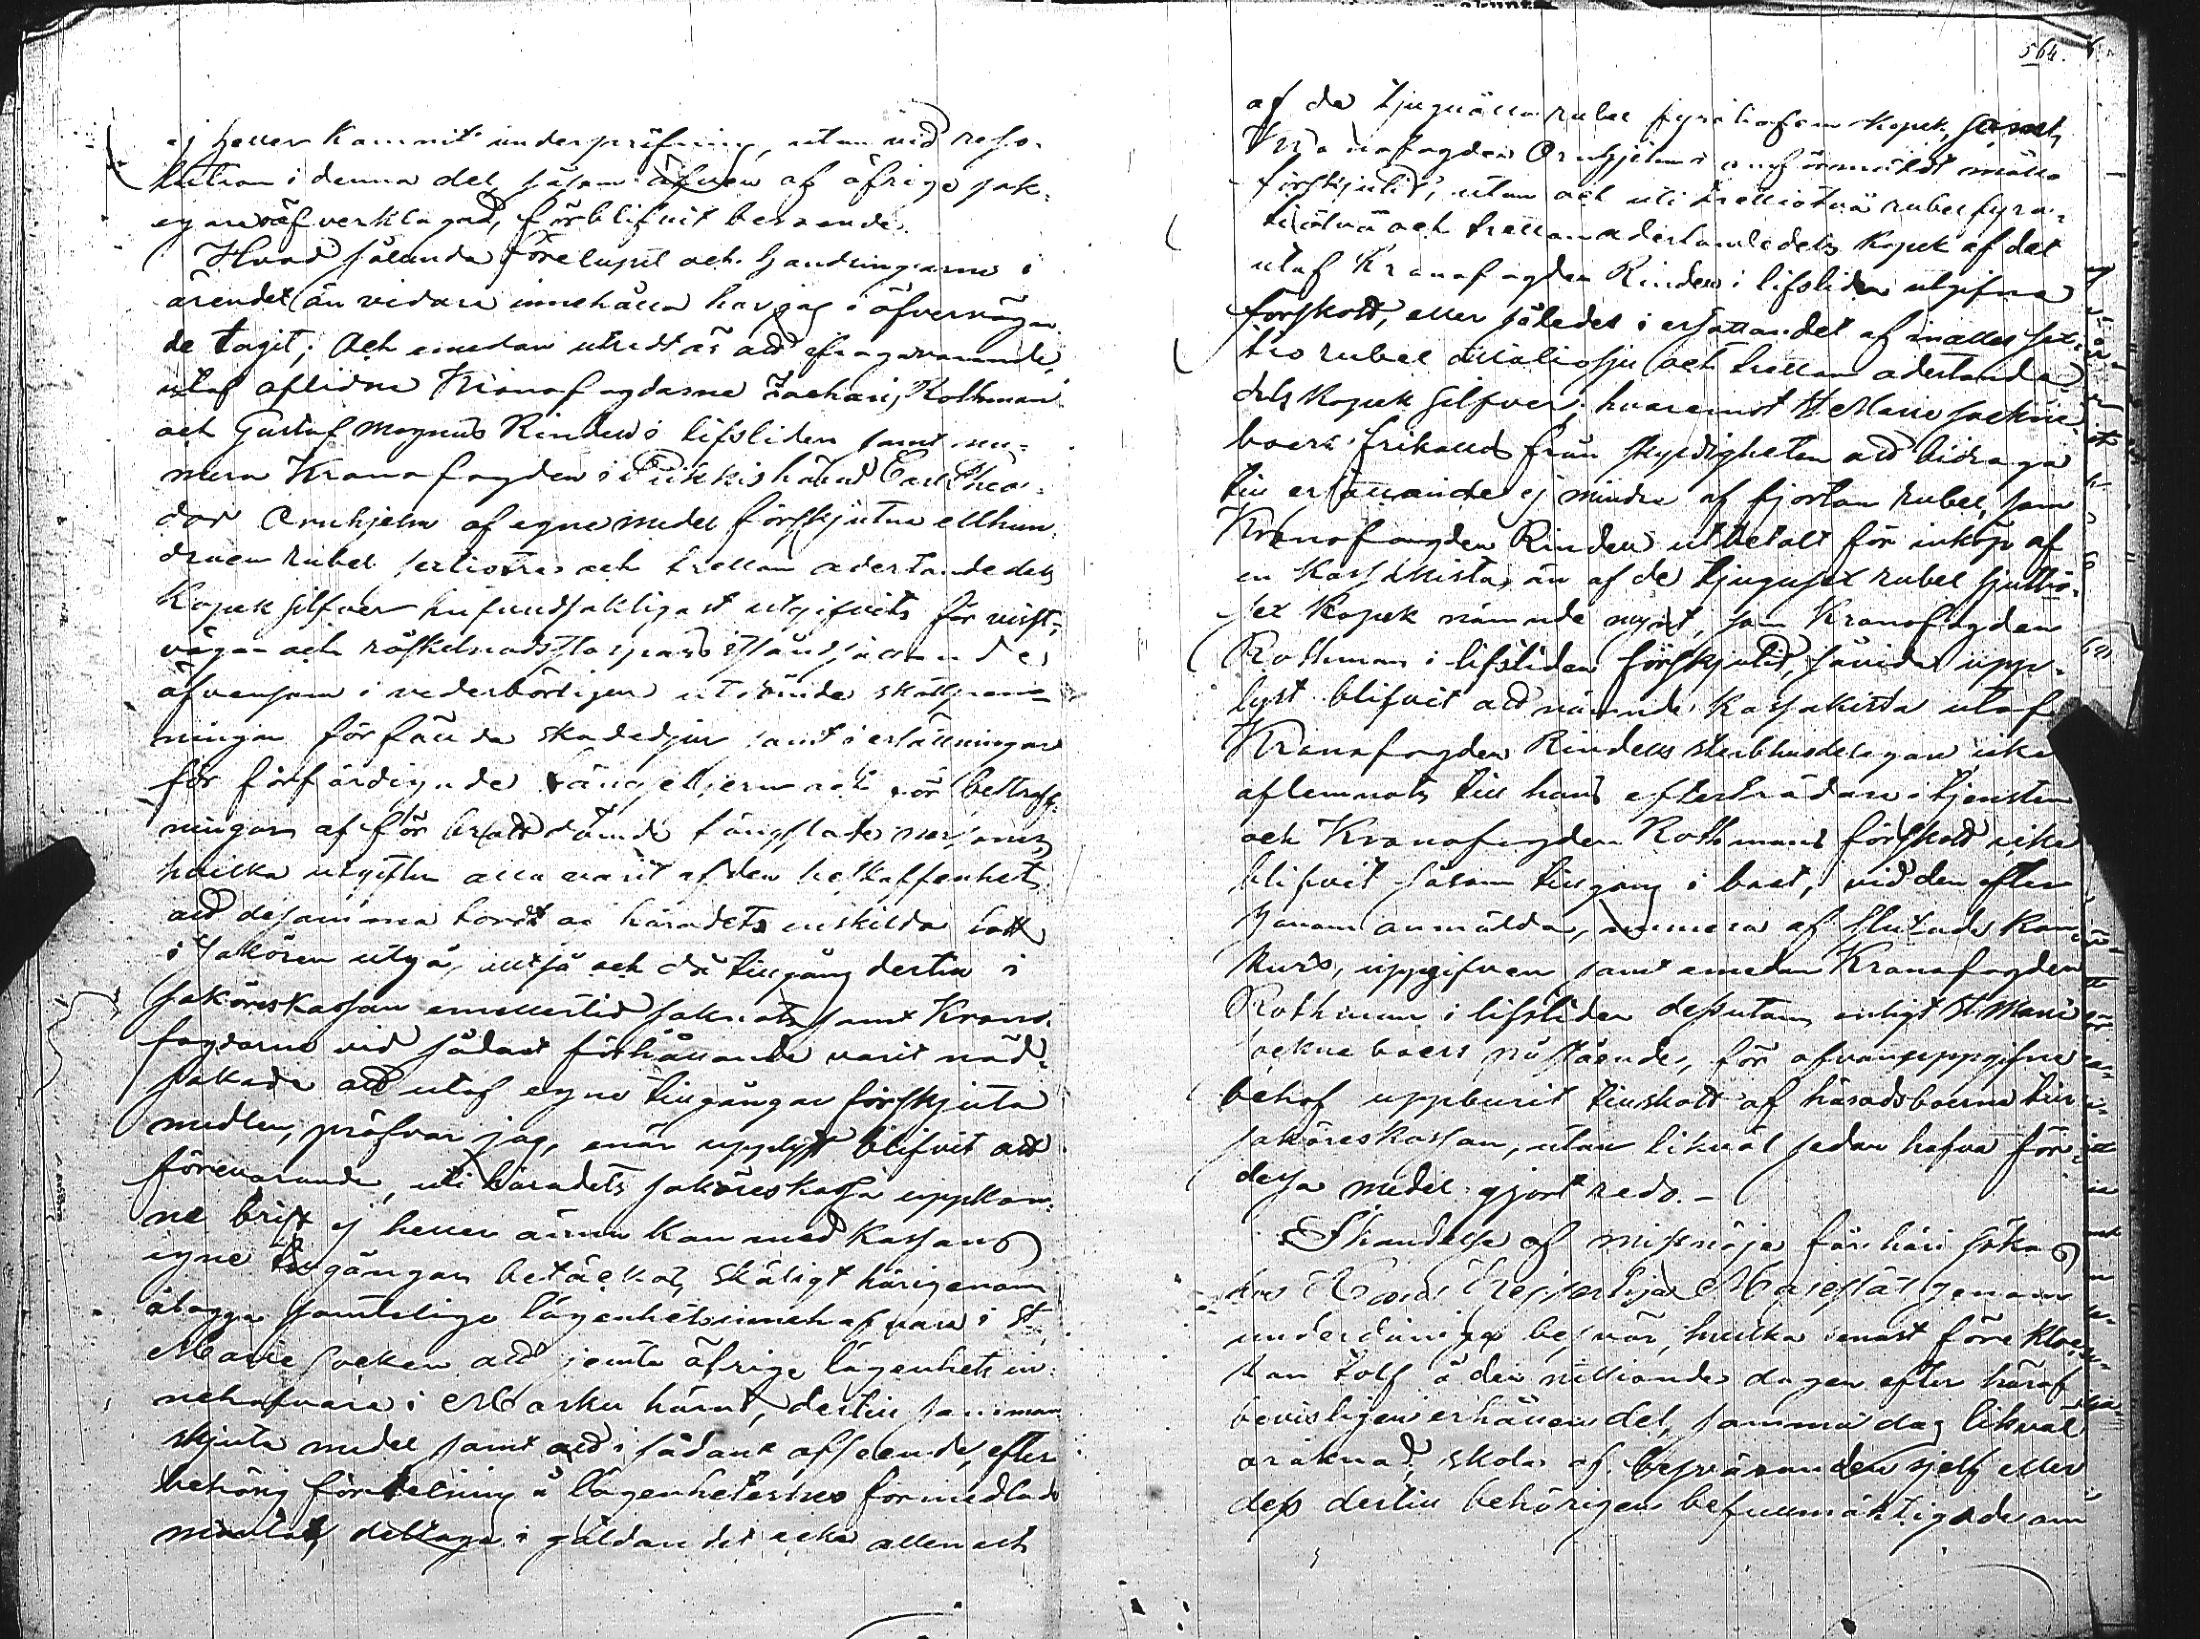 ej heller kommit under pröfning, utan vid reso-
lution i denna del, såsom äfven af öfrige sak-
egare öfverklagad, förblifvit beroende.
Hvad sålunda förelupit och handlingarne i
ärendet än vidare innehålla har jag i öfvervägan-
de tagit; Och emedan utredt är att ifrågavarande,
utaf aflidne Kronofogdarne Zacharis Rothman
och Gustaf Magnus Rindell i lifstiden samt nu-
mera Kronofogden i Pikkis härad Carl Theo-
dor Ørnhjelm af egne medel förskjutna etthun-
draen rubel sextiotre och tretton adertondedels
Kopek silfver hufvudsakligast utgifvits för
vägen och iståndsättande
äfvensom i vederbörligen utdömde skottpen-
ningar för fånda skadedjur samt i ersättningar
för förfärdigade fängseljern och för bestraff-
ningar af för brott dömde fängslade personer,
hvilka utgifter alla varit af den beskaffenhet,
att desamma bordt af häradets enskilda lott
i saköron utgå, men då tillgång dertill i
saköreskassan emellertid saknats samt Krono-
fogdarne vid sådant förhållande varit nöd-
sakade att utaf egne tillgångar förskjuta
medlen, pröfvar jag, enär upplyst blifvit att
förevarande, uti häradets saköreskassa uppkom-
ne brist ej heller ännu kan med Kassans
egne tillgångar betäckas, skäligt härigenom
ålägga samtelige lägenhetsinnehafvare i St
Marie socken att jemte öfrige lägenhets in-
nehafvare i Masku härad, dertill samman-
skjuta medel samt att i sådant afseende, efter
behörig fördelning å lägenheternes förmedlade
mantal, deltaga i gäldandet icke allenast
564.
af de tjuguåtta rubel fyratiofem kopek, som
Kronofogden Ørnhjelm i omförmäldt måtto
förskjutit, utan och uti trettiotvå rubel fyra-
tiotvå och tretton adertondedels kopek af det
utaf Kronofogden Rindell i lifstiden utgifne
förskott, eller således i ersättandet af inalles sex-
tio rubel åttatiosju och tretton adertonde-
dels kopek silfver; hvaremot St Marie sockne-
boer frikallas från skyldigheten att bidraga
till ersättande ej mindre af fjorton rubel, som
Kronofogden Rindell utbetalt för inköp af
en kassakista, än af de tjugusex rubel sjuttio-
sex kopek nämnde mynt, som Kronofogden
Rothman i lifstiden förskjutit, såvida upp-
lyst blifvit att nämnde kassakista utaf
Kronofogden Rindells sterbhusdelegare icke
aflemnats till hans efterträdare i tjensten
och Kronofogden Rothmans förskott icke
blifvit såsom tillgång i boet, vid den efter
honom anmälda, numera afslutade kon-
kurs, uppgifven samt emedan Kronofogden
Rothman i lifstiden dessutom, enligt St Marie
sockneboers påstående, för ofvanuppgifne
behof uppburit tillskott af häradsboerne till
saköreskassan, utan likväl sedan hafva för
dessa medel gjort redo. –
Åstundesse af missnöje får häri söka
hos Hans Kejserliga Majestät genom
underdåniga besvär, hvilka senast före kloc-
kan tolf å den nittionde dagen efter häraf
bevisligen erhållen del, samma dag likväl
oräknad, skola af besväranden sjelf eller
dess dertill behörigen befullmäktigade om-